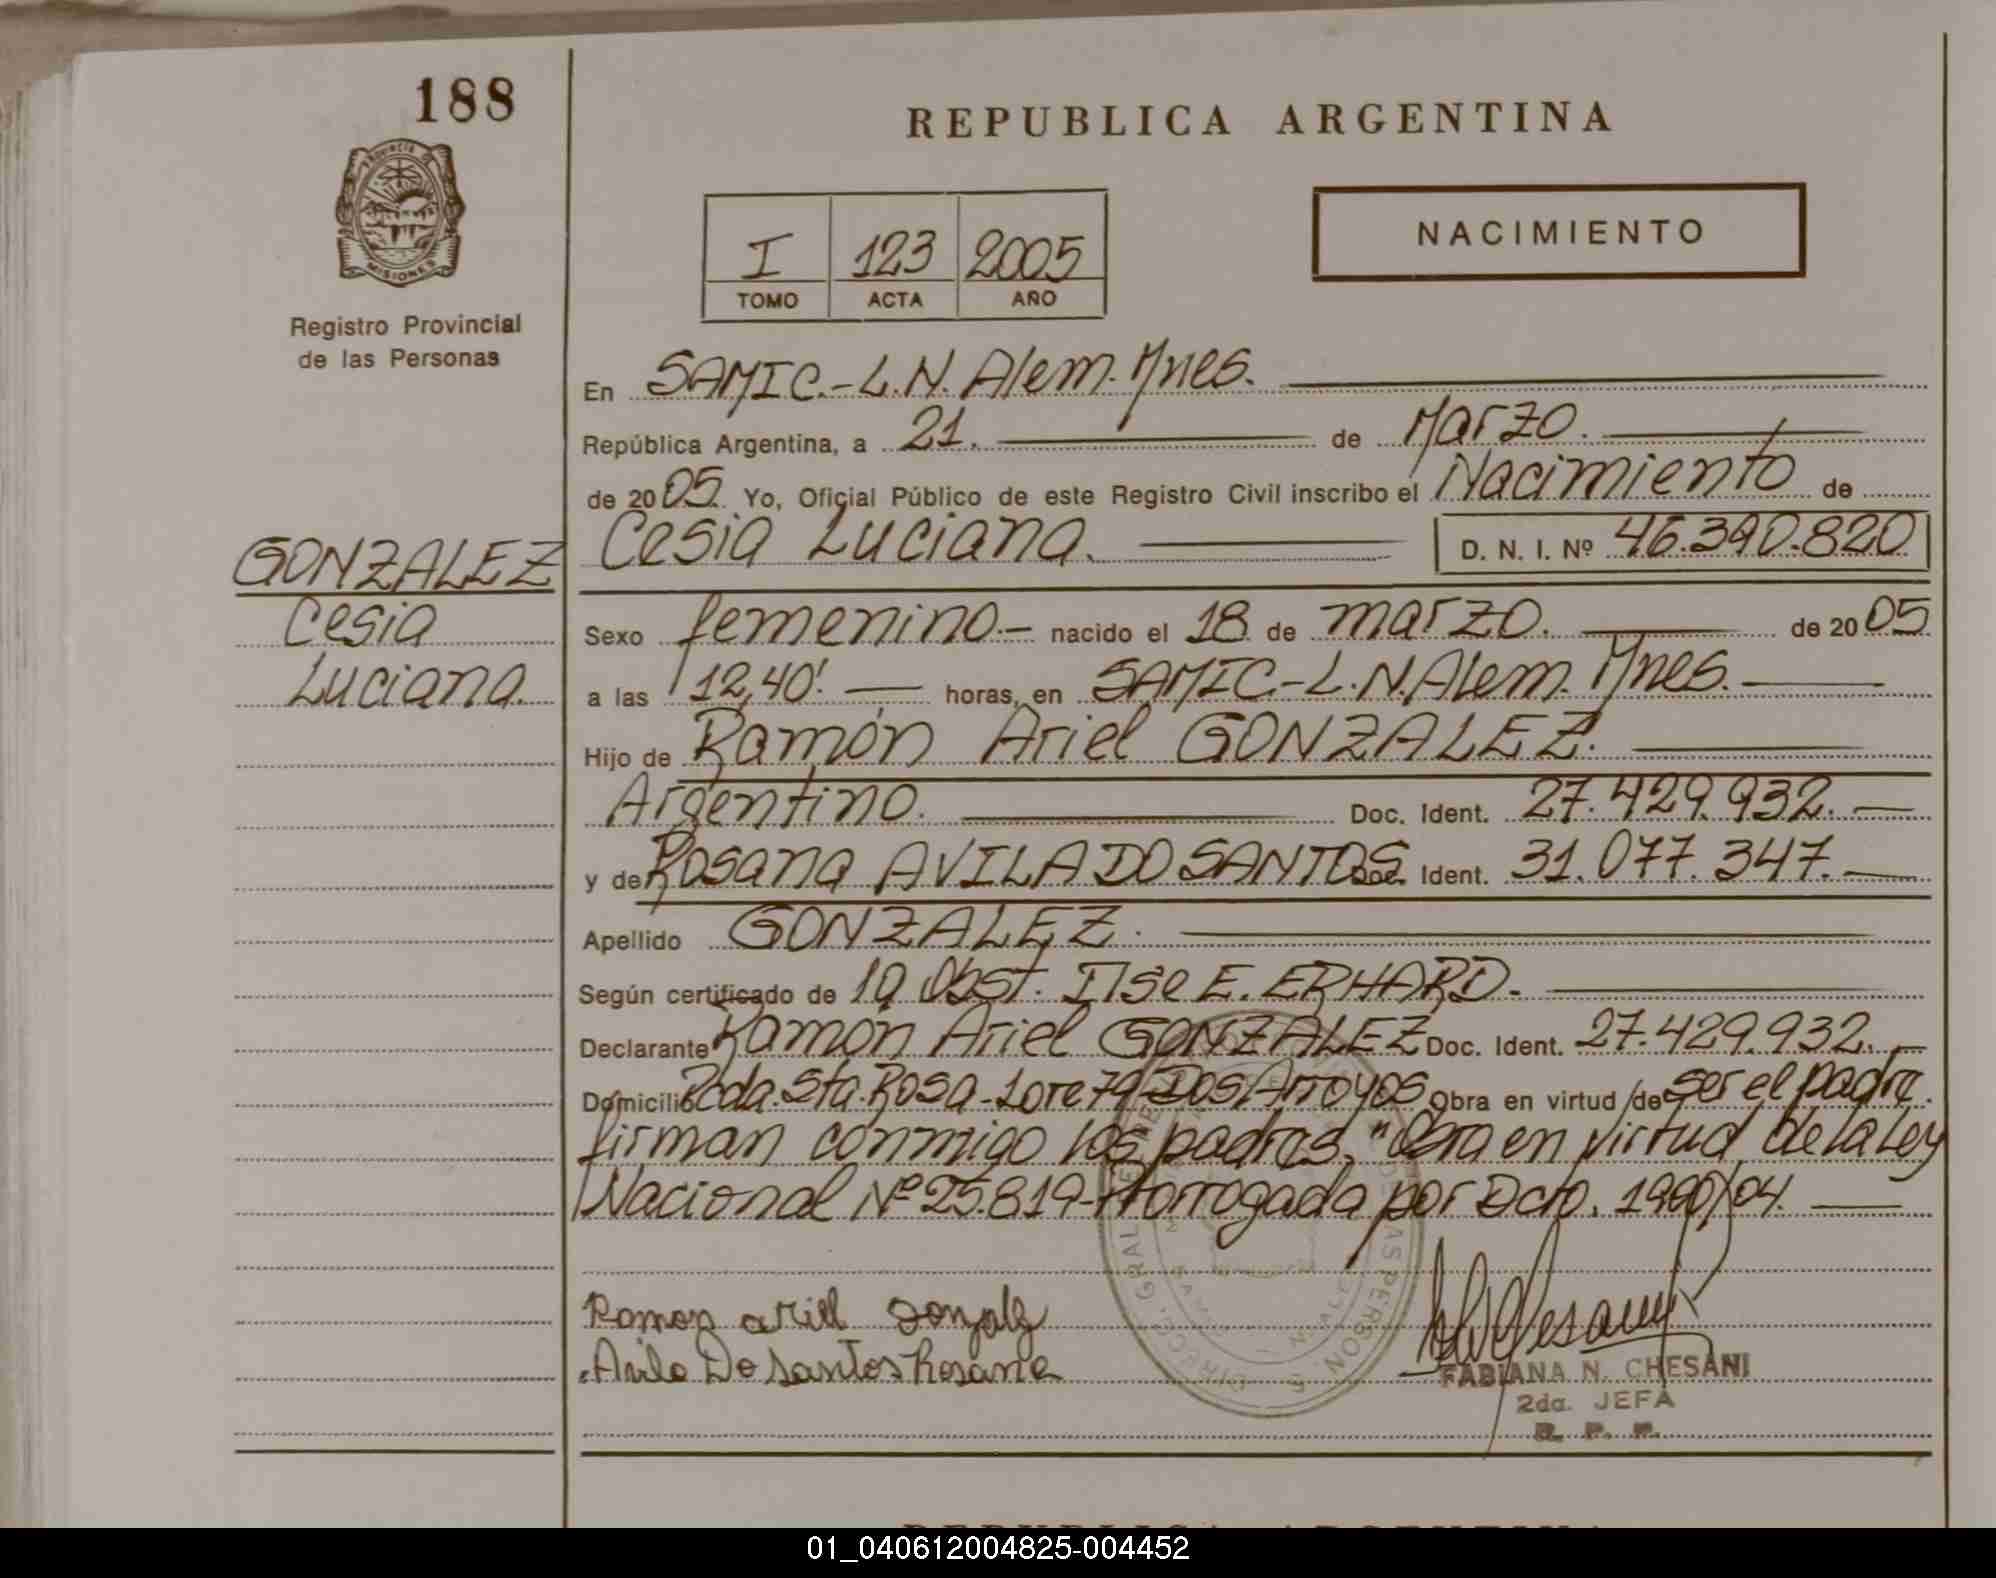 188
REPUBLICA ARGENTINA
PROVINCIA DE
MISIONES
Registro Provincial
de las Personas
I 123 2005
TOMO ACTA AÑO
NACIMIENTO
En SAMIC.-L.N. Alem. Mnes.
República Argentina, a 21. de Marzo.
de 2005. Yo, Oficial Público de este Registro Civil inscribo el Nacimiento de
Cesia Luciana. D. N. I. Nº 46.390.820
GONZALEZ
Cesia
Luciana.
Sexo femenino.- nacido el 18 de marzo. de 2005
a las 12,40'. horas, en SAMIC.-L.N.Alem. Mnes.
Hijo de Ramón Ariel GONZALEZ.
Argentino. Doc. Ident. 27.429.932.
y de Rosana AVILA DO SANTOS Doc. Ident. 31.077.347.
Apellido GONZALEZ.
Según certificado de la Obst. Ilse E. ERHARD.
Declarante Ramón Ariel GONZALEZ Doc. Ident. 27.429.932.
Domicilio Pcda. Sta. Rosa-Loreza-Dos Arroyos Obra en virtud de ser el padre.
firman conmigo los padres. "Obra en virtud de la Ley
Nacional Nº 25.819-Prorrogada por Dcto. 1990/04.
Ramon ariel Gonzalez
Avila Do Santos Rosana
FABIANA N. CHESANI
2da. JEFA
R. P. P.
01_040612004825-004452